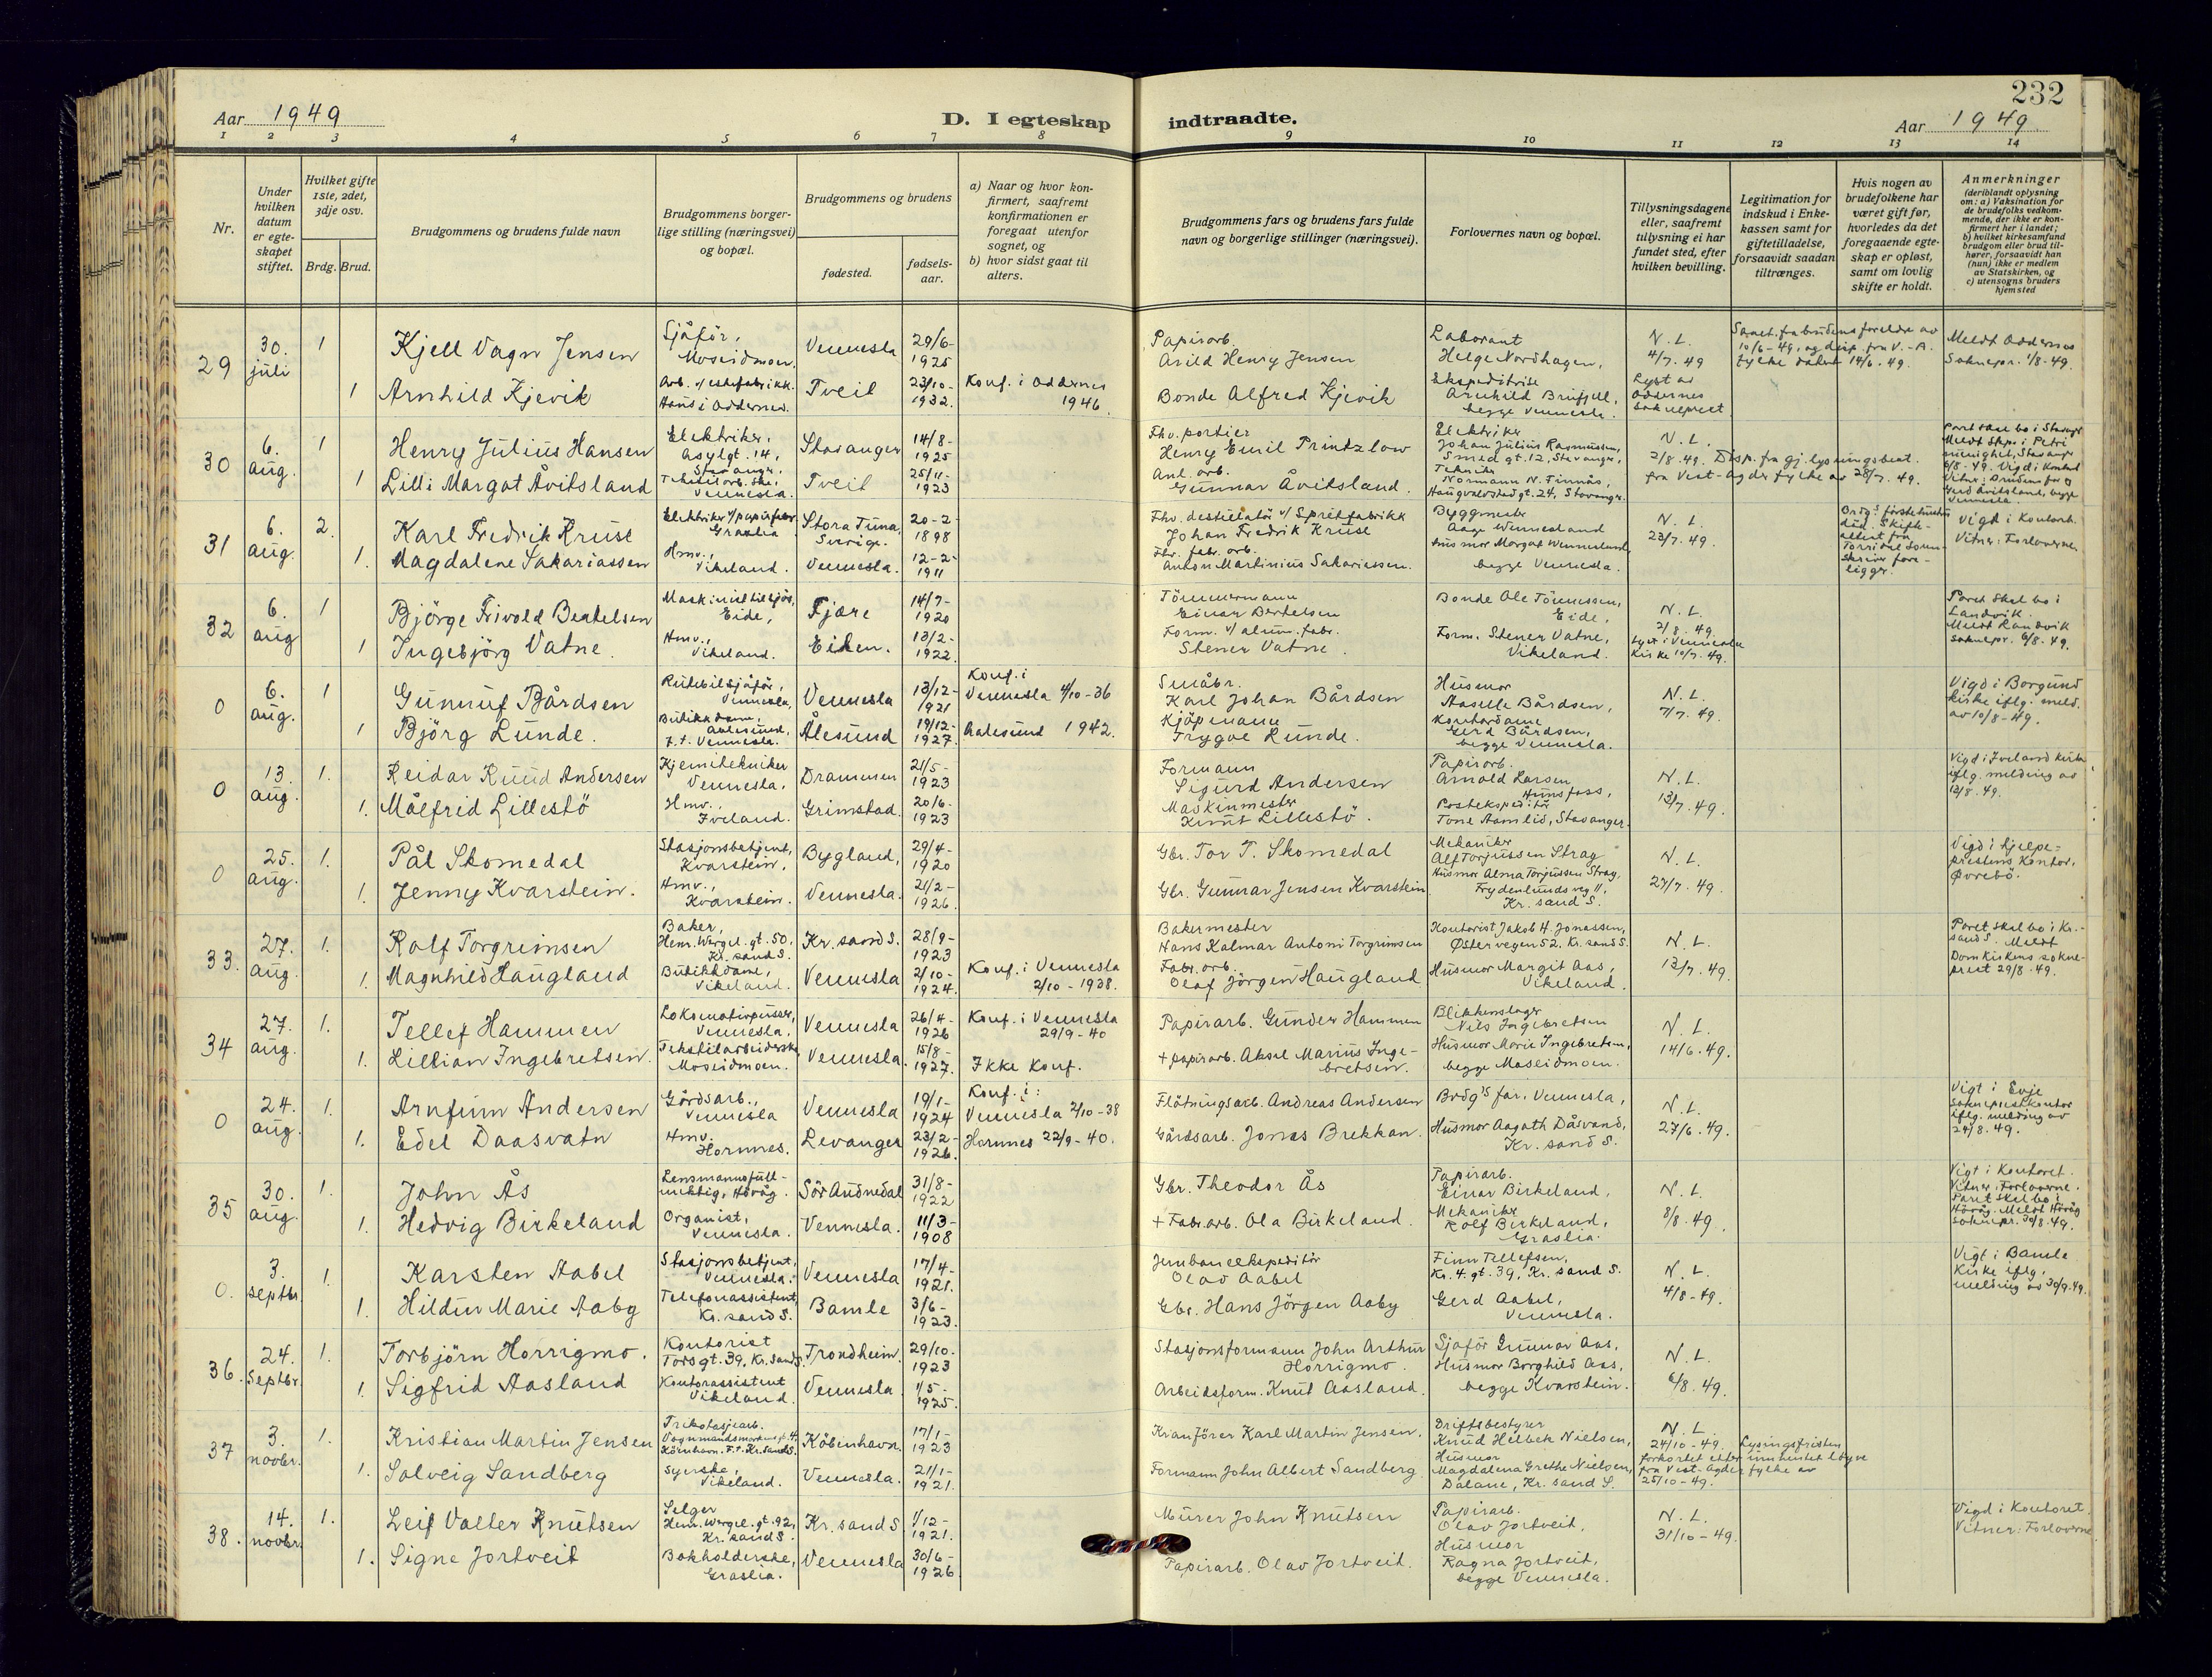 232
Aar 1949
D. I egteskap
indtraadte.
Aar 1949
1 2 3 4 5 6 7 8 9 10 11 12 13 14
Nr.
Under hvilken datum er egte-skapet stiftet.
Hvilket gifte 1ste, 2det, 3dje osv.
Brdg. Brud.
Brudgommens og brudens fulde navn
Brudgommens borger-lige stilling (næringsvei) og bopæl.
Brudgommens og brudens
fødested.
fødsels-aar.
a) Naar og hvor kon-firmert, saafremt konfirmationen er foregaat utenfor sognet, og
b) hvor sidst gaat til alters.
Brudgommens fars og brudens fars fulde navn og borgerlige stillinger (næringsvei).
Forlovernes navn og bopæl.
Tillysningsdagene eller, saafremt tillysning ei har fundet sted, efter hvilken bevilling.
Legitimation for indskud i Enke-kassen samt for giftetilladelse, forsaavidt saadan tiltrænges.
Hvis nogen av brudefolkene har været gift før, hvorledes da det foregaaende egte-skap er opløst, samt om lovlig skifte er holdt.
Anmerkninger
(deriblandt oplysning om: a) Vaksination for de brudefolks vedkom-mende, der ikke er kon-firmert her i landet; b) hvilket kirkesamfund brudgom eller brud til-hører, forsaavidt han (hun) ikke er medlem av Statskirken, og c) utensogns bruders hjemsted
29 30. juli 1 Kjell Vagn Jensen Sjåfør, Moseidmoen. Vennesla 29/6- 1925 Papirarb. Arild Henry Jensen Laborant Helge Nordhagen, N. L. 4/7. 49 Samt. fra brudens foreldre av 10/6-49, og disp. fra V.-A. fylke datert 14/6. 49. Meldt Oddernes Soknepr. 1/8-49.
1 Arnhild Kjevik Tveit 23/10- 1932. Konf. i Oddernes 1946. Bonde Alfred Kjevik Ekspeditrise Arnhild Brufjell, begge Vennesla. Lyst av Oddernes sokneprest
30 6. aug. 1 Henry Julius Hansen Elektriker, Asylgt. 14, Stavanger. Stavanger 14/8- 1925 Fhv. portier Henry Emil Printzlow Elektriker Johan Julius Rasmussen, Smed gt. 12, Stavanger, N. L. 2/8. 49. Disp. fra gj. lysningsbest. fra Vest-Agder fylke av 28/7. 49.
1 Lilli Margot Åvitsland Vennesla. Tveit 25/11- 1923 Anl. arb. Gunnar Åvitsland. Tekniker Normann N. Finnås, Haugvaldstad gt. 24, Stavanger.
31 6. aug. 2. Karl Fredrik Kruse Elektriker v/papirfabr. Graslia Stora Tuna, Sverige. 20-2- 1898 Fhv. destillatør v/Spritfabrikk Johan Fredrik Kruse Byggmester Aage Wennesland N. L. 23/7. 49. Vigd i Kontoret. Vitner: Forloverne.
1. Magdalene Sakariassen Hmv., Vikeland. Vennesla. 12-2- 1911 Fhv. fabr. arb. Anton Martinius Sakariassen. Husmor Margot Wennesland, begge Vennesla.
32 6. aug 1 Bjørge Frivold Bertelsen Maskinist tilsjøs, Eide, Fjære 14/7- 1920 Tømmermann Einar Bertelsen Bonde Ole Tønnessen, Eide, N. L. 2/8. 49. Lyst i Vennesla Kirke 10/7. 49. Paret skal bo i Landvik. Meldt Landvik soknepr. 6/8. 49.
1 Ingebjørg Vatne. Hmv., Vikeland. Eiken. 13/2- 1922. Form. v/ alum. fabr. Stener Vatne. Form. Stener Vatne, Vikeland.
0 6. aug. 1 Gunnuf Bårdsen Rutebilsjåfør, Vennesla, Vennesla 13/12- 1921 Konf. i Vennesla 4/10-36 Småbr. Karl Johan Bårdsen Husmor Aaselle Bårdsen, N. L. 7/7. 49. Vigd i Borgund kirke iflg. meld. av 10/8-49.
1 Bjørg Lunde. Butikkdame, Aalesund, f. t. Vennesla. Ålesund 19/12- 1927. Aalesund 1942. Kjøpmann Trygve Lunde. Kontordame Gerd Bårdsen, begge Vennesla.
0 13. aug. 1. Reidar Knud Andersen Kjemitekniker Vennesla, Drammen 21/5- 1923 Formann Sigurd Andersen Papirarb. Arnold Larsen, Hunsfoss, N. L. 13/7. 49. Vigd i Iveland kirke iflg. melding av 13/8. 49.
1. Målfrid Lillestø Hmv., Iveland. Grimstad. 20/6- 1923 Maskinmester Knut Lillestø. Postekspeditør Tone Aamlid, Stavanger.
0 25. aug. 1. Pål Skomedal Stasjonsbetjent, Kvarstein, Bygland, 29/4- 1920 Gbr. Tor T. Skomedal Mekaniker Alf Torjussen Strag N. L. 27/7. 49. Vigd i hjelpe-prestens Kontor, Øvrebø.
1. Jenny Kvarstein. Hmv., Kvarstein. Vennesla. 21/2- 1926. Gbr. Gunnar Jensen Kvarstein Husmor Alma Torjussen Strag, Frydenlundsveg 11, Kr. sand S.
33. 27. aug. 1. Rolf Torgrimsen Baker, Henr. Wergel. gt. 50, Kr. sand S. Kr. sand S. 28/9- 1923 Bakermester Hans Kalmar Antoni Torgrimsen Kontorist Jakob H. Jonassen, Østervegen 52. Kr. sand S. N. L. 13/7. 49. Paret skal bo i Kr.-sand S. Meldt Domkirkens sokne-prest 29/8. 49.
1. Magnhild Haugland Butikkdame, Vikeland. Vennesla 2/10- 1924. Konf. i Vennesla 2/10-1938. Fabr. arb. Olaf Jörgen Haugland Husmor Margit Aas, Vikeland.
34 27. aug. 1. Tellef Hammen Lokomotivpusser, Vennesla, Vennesla 26/4- 1926 Konf. i Vennesla 29/9-40 Papirarb. Gunder Hammen Blikkenslager Nils Ingebretsen N. L. 14/6. 49.
1. Lillian Ingebretsen. Tekstilarbeiderske Moseidmoen. Vennesla. 15/8- 1927. Ikke Konf. + papirarb. Aksel Marius Inge-bretsen. Husmor Marie Ingebretsen, begge Moseidmoen.
0 24. aug. 1. Arnfinn Andersen Gårdsarb., Vennesla Vennesla 19/1- 1924 Konf. i: Vennesla 2/10-38 Fløtningsarb. Andreas Andersen Brdg's far, Vennesla, N. L. 27/6. 49. Vigt i Evje sokneprestkontor iflg. melding av 24/8. 49.
1. Edel Daasvatn Hmv. Hornnes. Levanger 23/2- 1926. Hornnes 22/9-40. Gårdsarb. Jonas Brekkan. Husmor Aagath Dåsvand, Kr. sand S.
35 30. aug. 1. John Ås Lensmannsfull-mektig, Høvåg. Sör Audnedal 31/8- 1922 Gbr. Theodor Ås Papirarb. Einar Birkeland, N. L. 8/8. 49. Vigt i Kontoret. Vitner: Forloverne. Paret skal bo i Høvåg. Meldt Høvåg soknepr. 30/8. 49.
1. Hedvig Birkeland Organist, Vennesla. Vennesla. 11/3- 1908 + Fabr. arb. Ola Birkeland. Mekaniker Rolf Birkeland, Graslia.
0. 3. septbr. 1. Karsten Aabel Stasjonsbetjent, Vennesla. Vennesla 17/4- 1921. Jernbaneekspeditør Olav Aabel Finn Tellefsen, Kr. 4. gt. 39, Kr. sand S. N. L. 4/8-49. Vigt i Bamle Kirke iflg. melding av 30/9. 49.
1. Hildur Marie Aaby Telefonassistent, Kr. sand S. Bamle 3/6- 1923. Gbr. Hans Jörgen Aaby Gerd Aabel, Vennesla.
36. 24. Septbr. 1. Torbjörn Horrigmo. Kontorist Torsgt. 39, Kr. sand S. Trondheim. 29/10. 1923 Stasjonsformann John Arthur Horrigmo. Sjåfør Gunnar Aas, N. L. 6/8. 49.
1. Sigfrid Aasland Kontorassistent Vikeland. Vennesla 1/5- 1925. Arbeidsform. Knut Aasland. Husmor Borghild Aas, begge Kvarstein.
37 3. novbr. 1. Kristian Martin Jensen Trikotasjearb. København. F. t. Kr. sand S. København. 17/1- 1923 Kranfører Karl Martin Jensen. Driftsbestyrer Knud Helbek Nielsen, N. L. 24/10-49. Lysingsfristen forkortet etter innhentet løyve fra Vest-Agder fylke av 25/10-49.
1. Solveig Sandberg Syerske, Vikeland. Vennesla. 21/1- 1921. Formann John Albert Sandberg Husmor Magdalena Grethe Nielsen, Dalane, Kr. sand S.
38. 14. novbr. 1. Leif Valter Knutsen Selger Henr. Wergel. gt. 92, Kr. sand S. Kr. sand S 1/12- 1921. Murer John Knutsen Papirarb. Olav Jortveit, N. L. 31/10-49. Vigd i Kontoret. Vitner: Forloverne
1. Signe Jortveit Bokholderske, Graslia. Vennesla 30/6- 1926 Papirarb. Olav Jortveit. Husmor Ragna Jortveit, begge Vennesla.